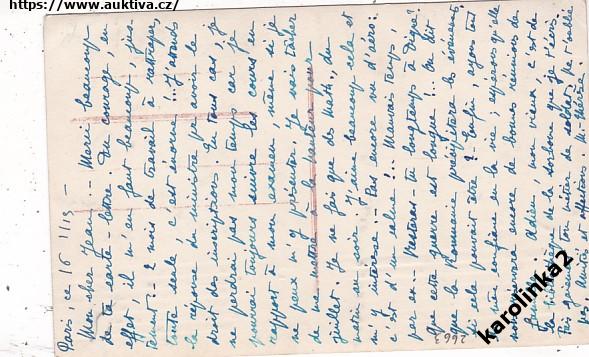 https://www.auktiva.cz/
Paris, ce 16 1/15 –
Mon cher Jean. – Merci beaucoup
de ta carte-lettre. Du courage, en
effet, il m'en faut beaucoup, plus
2 mois de travail à rattraper,
toute seule, c'est énorme !.. J'attends
la réponse du ministre pr avoir le
droit des inscriptions. En tous cas, je
ne perdrai pas mon temps car je
pourrai toujours suivre les cours en
rapport à mon examen, même si je
ne peux m'y présenter. Je vais tâcher
de me mettre à la hauteur pour
juillet. Je ne fais que des Math., du
matin au soir. J'aime beaucoup cela et
m'y intéresse – Pas encore vu d'aéro:
c'est d'un calme !.. Mauvais temps,
par ex – Resteras-tu longtemps à Digne?
que cette guerre est longue !.. On dit
que la Roumanie précipitera les événements,
si cela pouvait être ? – Enfin, ayons tout
de même confiance en la vie ; espérons qu'elle
nous réservera encore de bonnes réunions de
famille. Adieu, mon vieux, c'est de
la bibliothèque de la Sorbonne que je t'écris.
Fais ton métier de soldat, ne t'oublie
pas, Amitiés et affections. M-Thérèse
2663
karolinka2